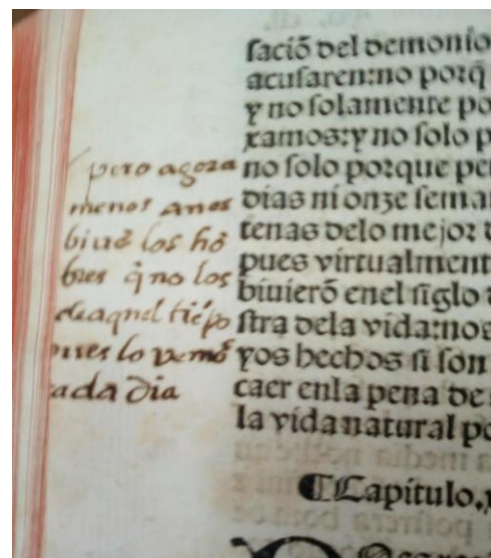 saciõ del demonio
acusaren:no porq̃
y no solamente po
xamos:y no solo p
no solo porque per
dias ni onze seman
tenas delo mejor d
pues virtualment
biuierõ enel siglo
stra dela vida:nos
yos hechos si son
caer enla pena de
la vida natural po
¶Capitulo.x
pero agora
menos anos
biuẽ los hõ
bres q̃ no los
deaquel tiẽpo
pues lo vemos
cada dia